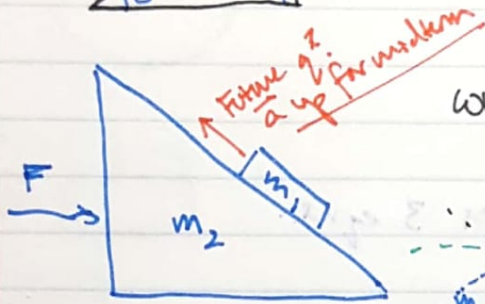 Future q?
a up for midterm
F
m₁
m₂